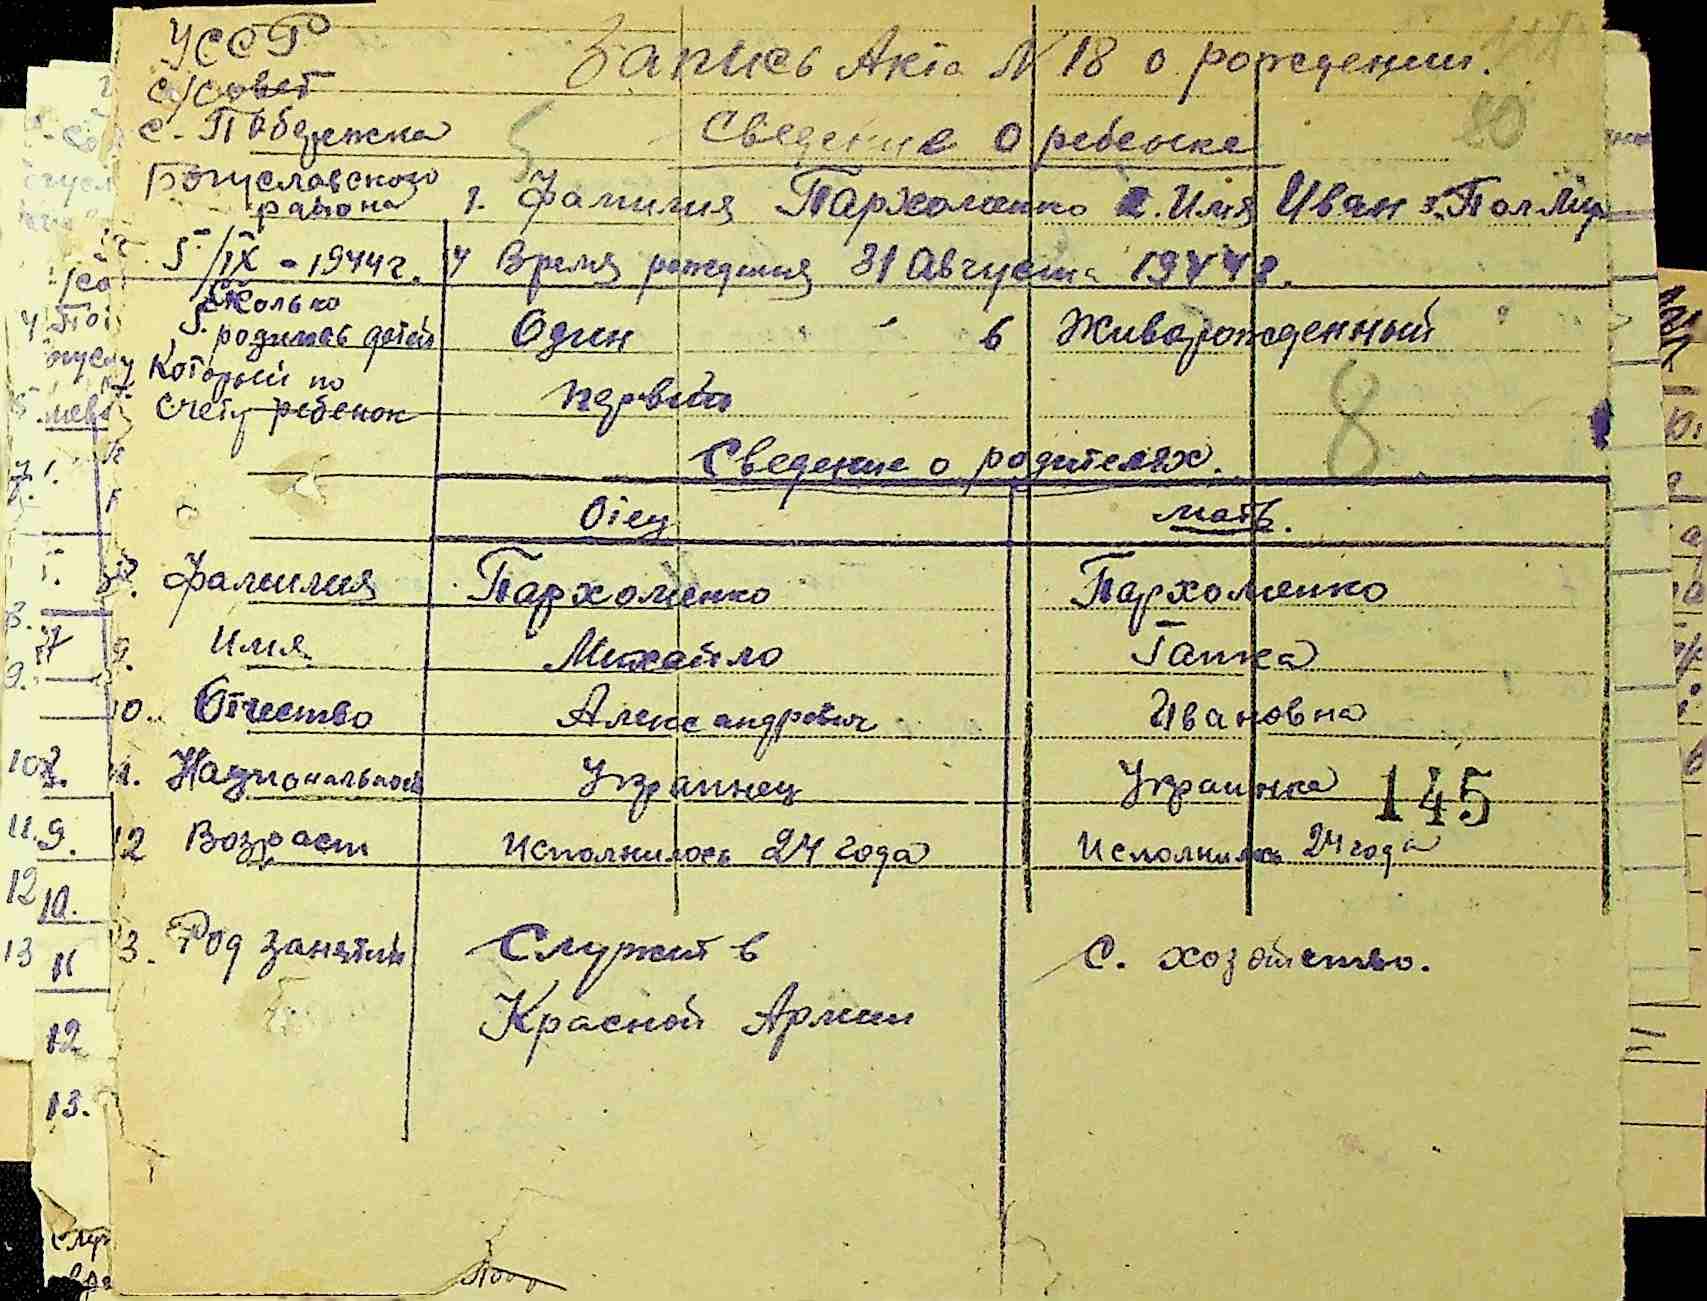 УССР
Запись Акта N 18 о рождении.
С/совет
с. Побережка
80
Сведение о ребенке
Богуславского
района
1. Фамилия Пархоменко 2. Имя Иван 3. Пол Муж
5/IX - 1944 г.
4 Время рождения 31 Августа 1944 г.
5. Сколько
родилось детей
Один
6 Живорожденный
7. Который по
счету ребенок
первый
8
Сведение о родителях.
Отец
мать.
8. Фамилия Пархоменко Пархоменко
9. Имя Михайло Гапка
10. Отчество Александрович Ивановна
11. Национальность Украинец Украинка 145
12 Возраст Исполнилось 24 года Исполнилось 24 года
13. Род занятий Служит в с. хозяйство.
Красной Армии